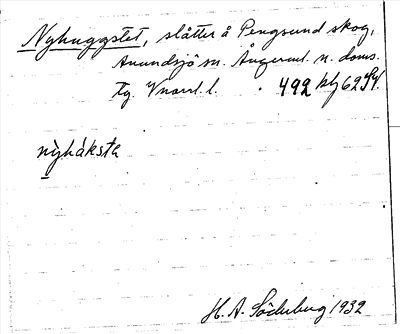 Nyhuggstet, slåtter å Pengsund skog,
Anundsjö sn. Ångerml. n. doms.
tg. Vnorrl. l. 492 blz 62
nyhåksta
H. A. Söderberg 1932